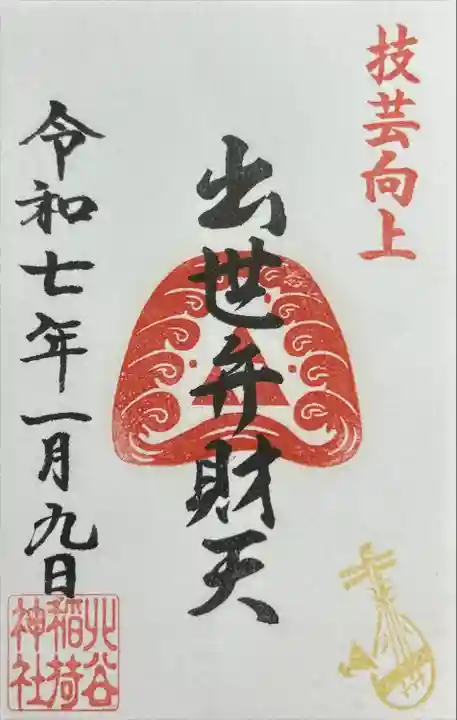 技芸向上
出世弁財天
令和七年一月九日
北谷
稲持
神社